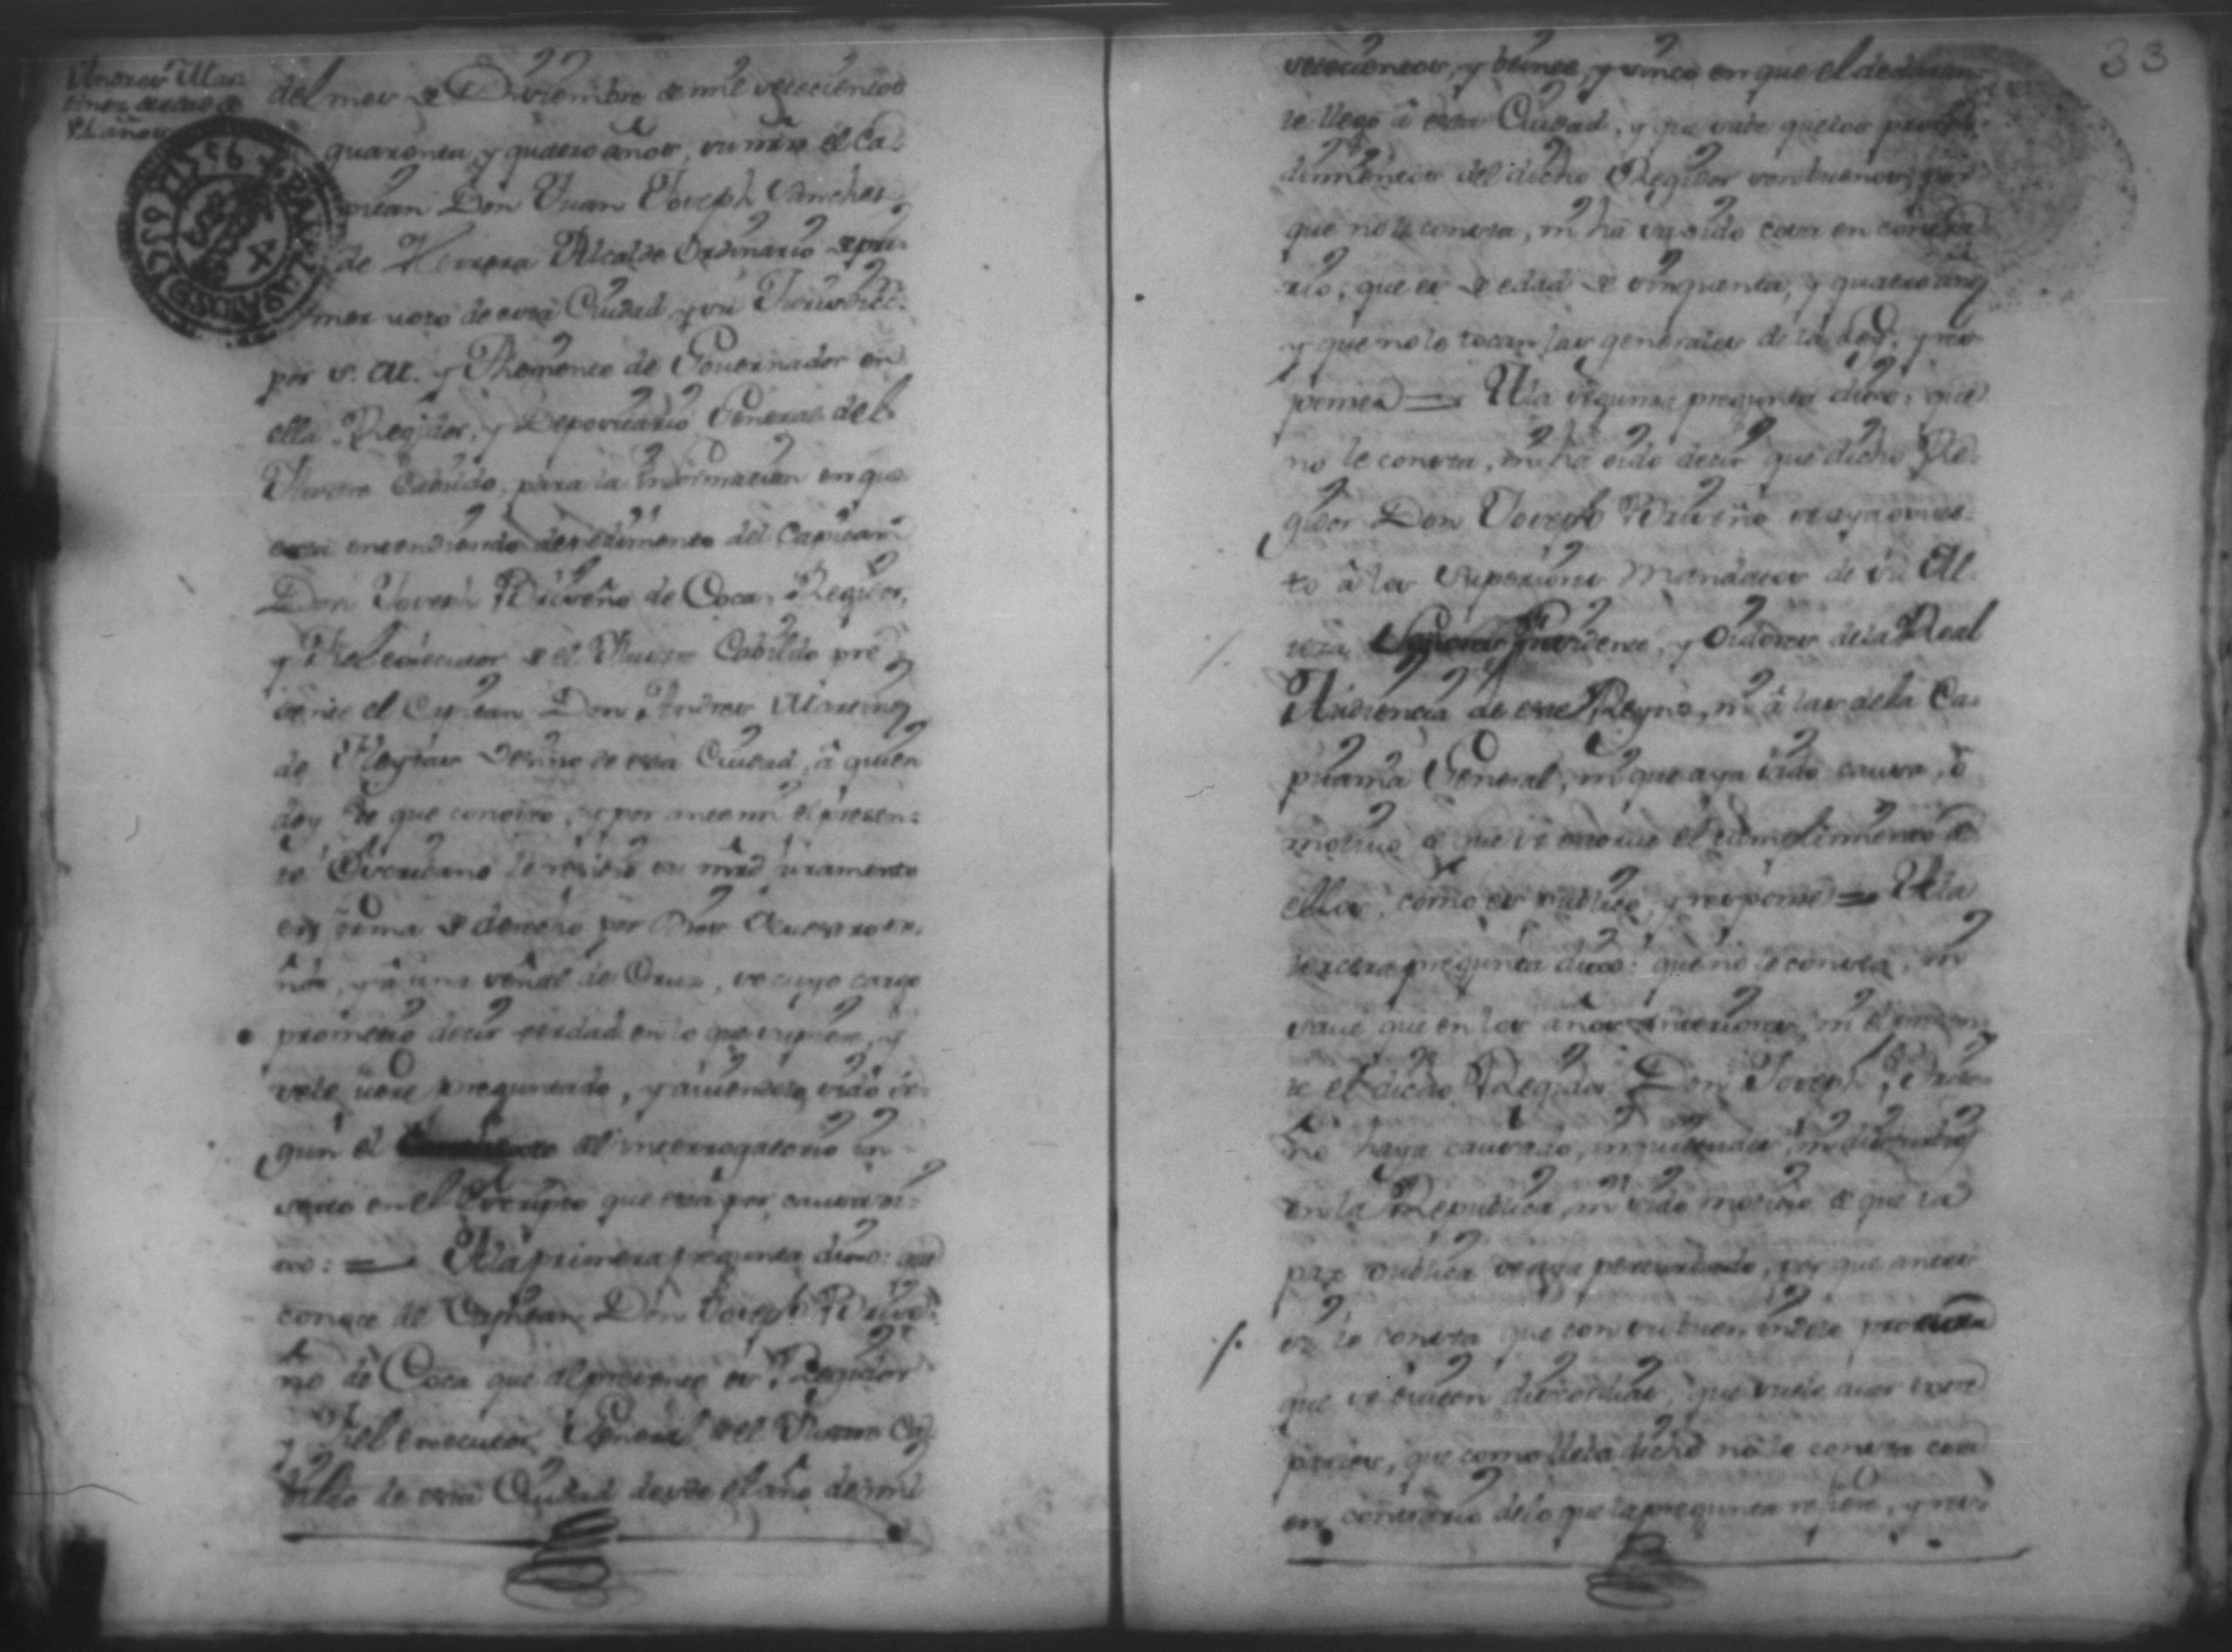 Andres Mar
tinez de edad de
54 años
del mes de Diziembre de mil setecientos
quarenta, y quatro años, su mrd el Ca-
pitan Don Juan Joseph Sanchez
de Herrera Alcalde Ordinario de pri-
mer voto de esta Ciudad, y su Jurisdicc.
por S. M. y Theniente de Governador en
ella Regidor, y Depositario General del
Ilustre Cabildo, para la informacion en que
esta entendiendo de pedimento del Capitan
Don Joseph Briseño de Coca, Regidor,
y Fiel executor de el Ilustre Cabildo pre-
sente el Capitan Don Andres Martinez
de Vezino de esta Ciudad, a quien
doy fee que conozco, y por ante mi el presen-
te Escrivano le recivio su mrd juramento
en forma de derecho por Dios Nuestro Se-
ñor, y a una señal de Cruz, so cuyo cargo
prometio decir verdad en lo que supiere, y
sele fuere preguntado, y aviendolo sido se-
gun el del interrogatorio in-
serto en el Escripto que esta por causa di-
xo: = A la primera pregunta dixo: que
conoce al Capitan Don Joseph Brise-
ño de Coca que al presente es Regidor
y Fiel executor General de el Ilustre Ca-
bildo de esta Ciudad desde el año de mil
33
setecientos, y veinte, y cinco en que el declaran-
te llego â esta Ciudad, y que save que los proce-
dimientos del dicho Regidor son buenos, por-
que no le consta, ni ha savido cosa en contra-
rio; que es de edad de cinquenta, y quatro años
y que no le tocan las generales de la Ley, y res-
ponde = A la segunda pregunta dixo: que
no le consta, ni ha oido decir que dicho Re-
gidor Don Joseph Briseño se aya opues-
to â los Superiores Mandatos de su Al-
teza Señores Presidente, y Oidores de la Real
Audiencia de este Reyno, ni â las de la Ca-
pitania General, ni que aya sido causa, ô
motivo de que se estorve el cumplimiento de
ellos, como es publico, y responde = A la
tercera pregunta dixo: que no le consta, ni
save que en los años anteriores, ni el presen-
te el dicho Regidor Don Joseph Brise-
ño haya causado, inquietudes, ni discordias
en la Republica, ni sido motivo de que la
paz publica se aya perturbado, porque antes
si le consta que con su buen zelo procura
que se eviten discordias, que suele aver entre
partes, que como lleva dicho no le consta cosa
en contrario de lo que la pregunta refiere, y res-